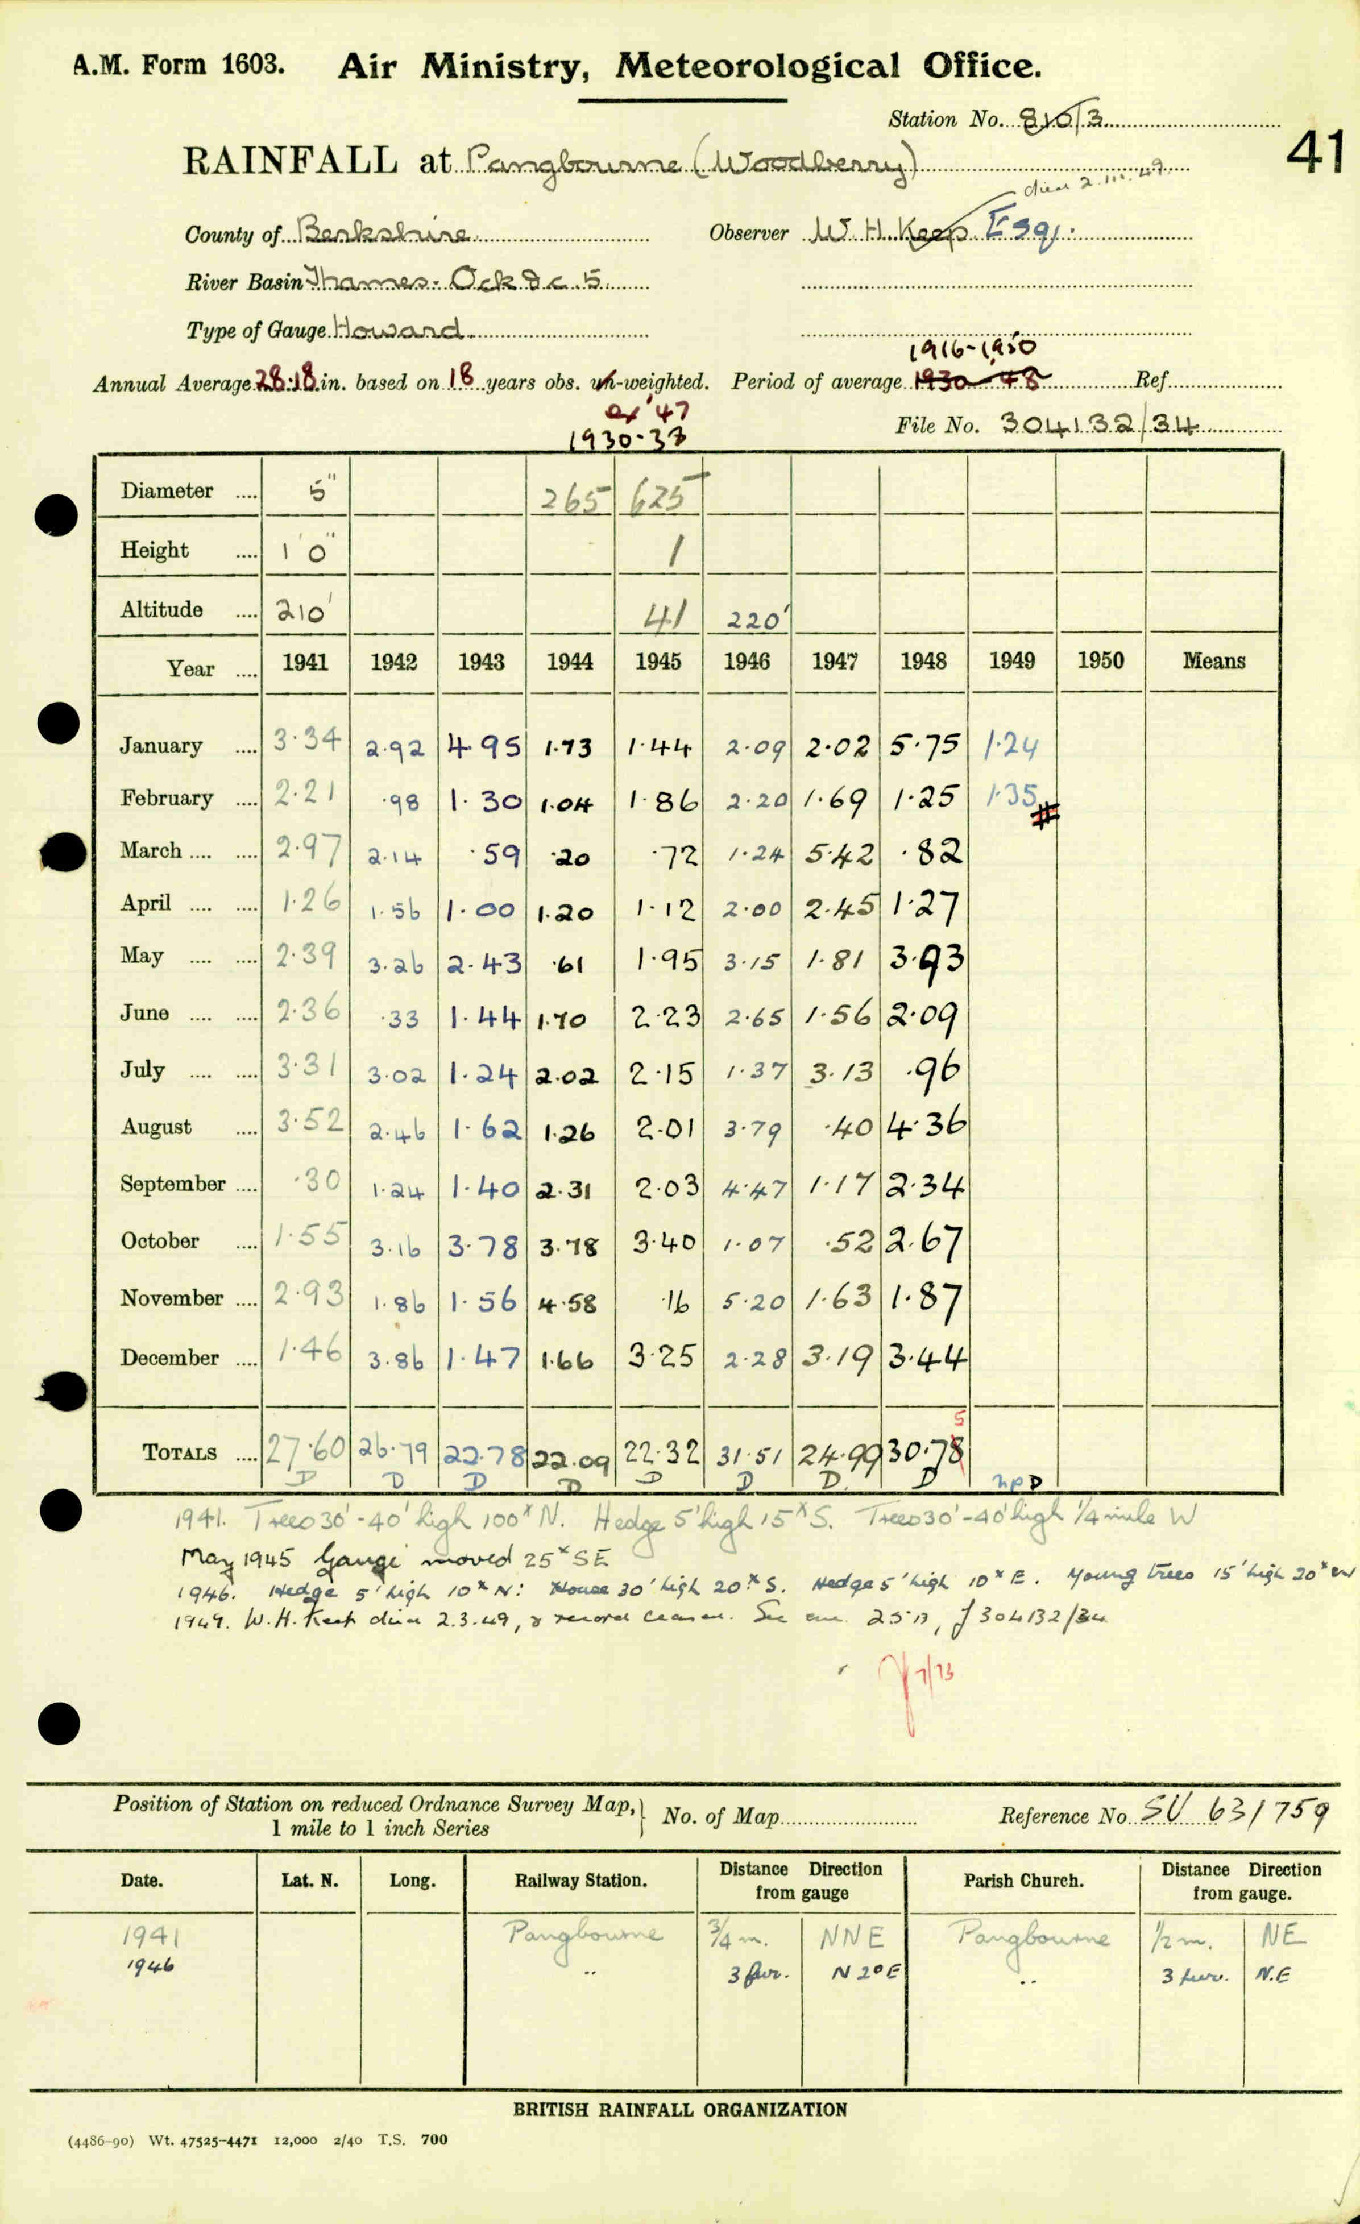 A.M. Form 1603. Air Ministry, Meteorological Office.
Station No. 810/3
41
RAINFALL at Pangbourne (Woodberry)
died 2.III.49
County of Berkshire Observer W. H. Keep Esq.
River Basin Thames-Ock &c 5
Type of Gauge Howard
1916-1950
Annual Average 28.18 in. based on 18 years obs. un-weighted. Period of average 1930-48 Ref
ex '47
1930-38
File No. 304132/34
Diameter .... 5" 265 625
Height .... 1' 0" 1
Altitude .... 210' 41 220'
Year .... 1941 1942 1943 1944 1945 1946 1947 1948 1949 1950 Means
January .... 3.34 2.92 4.95 1.73 1.44 2.09 2.02 5.75 1.24
February .... 2.21 .98 1.30 1.04 1.86 2.20 1.69 1.25 1.35 #
March .... .... 2.97 2.14 .59 .20 .72 1.24 5.42 .82
April .... .... 1.26 1.56 1.00 1.20 1.12 2.00 2.45 1.27
May .... .... 2.39 3.26 2.43 .61 1.95 3.15 1.81 3.93
June .... .... 2.36 .33 1.44 1.70 2.23 2.65 1.56 2.09
July .... .... 3.31 3.02 1.24 2.02 2.15 1.37 3.13 .96
August .... 3.52 2.46 1.62 1.26 2.01 3.79 .40 4.36
September .... .30 1.24 1.40 2.31 2.03 4.47 1.17 2.34
October .... 1.55 3.16 3.78 3.78 3.40 1.07 .52 2.67
November .... 2.93 1.86 1.56 4.58 .16 5.20 1.63 1.87
December .... 1.46 3.86 1.47 1.66 3.25 2.28 3.19 3.44
5
TOTALS .... 27.60 26.79 22.78 22.09 22.32 31.51 24.99 30.78
D D D D D D D D npD
1941. Trees 30'-40' high 100x N. Hedge 5' high 15x S. Trees 30'-40' high 1/4 mile W
May 1945 Gauge moved 25x SE
1946. Hedge 5' high 10x N: House 30' high 20x S. Hedge 5' high 10x E. Young trees 15' high 20x W
1949. W.H. Keep died 2.3.49, & record ceased. See 25B, f 304132/34
7/73
Position of Station on reduced Ordnance Survey Map, 1 mile to 1 inch Series } No. of Map Reference No. SU 631759
Date. Lat. N. Long. Railway Station. Distance Direction from gauge Parish Church. Distance Direction from gauge.
1941 Pangbourne 3/4 m. NNE Pangbourne 1/2 m. NE
1946 " 3 fur. N 2° E " 3 fur. N.E
BRITISH RAINFALL ORGANIZATION
(4486-90) Wt. 47525-4471 12,000 2/40 T.S. 700